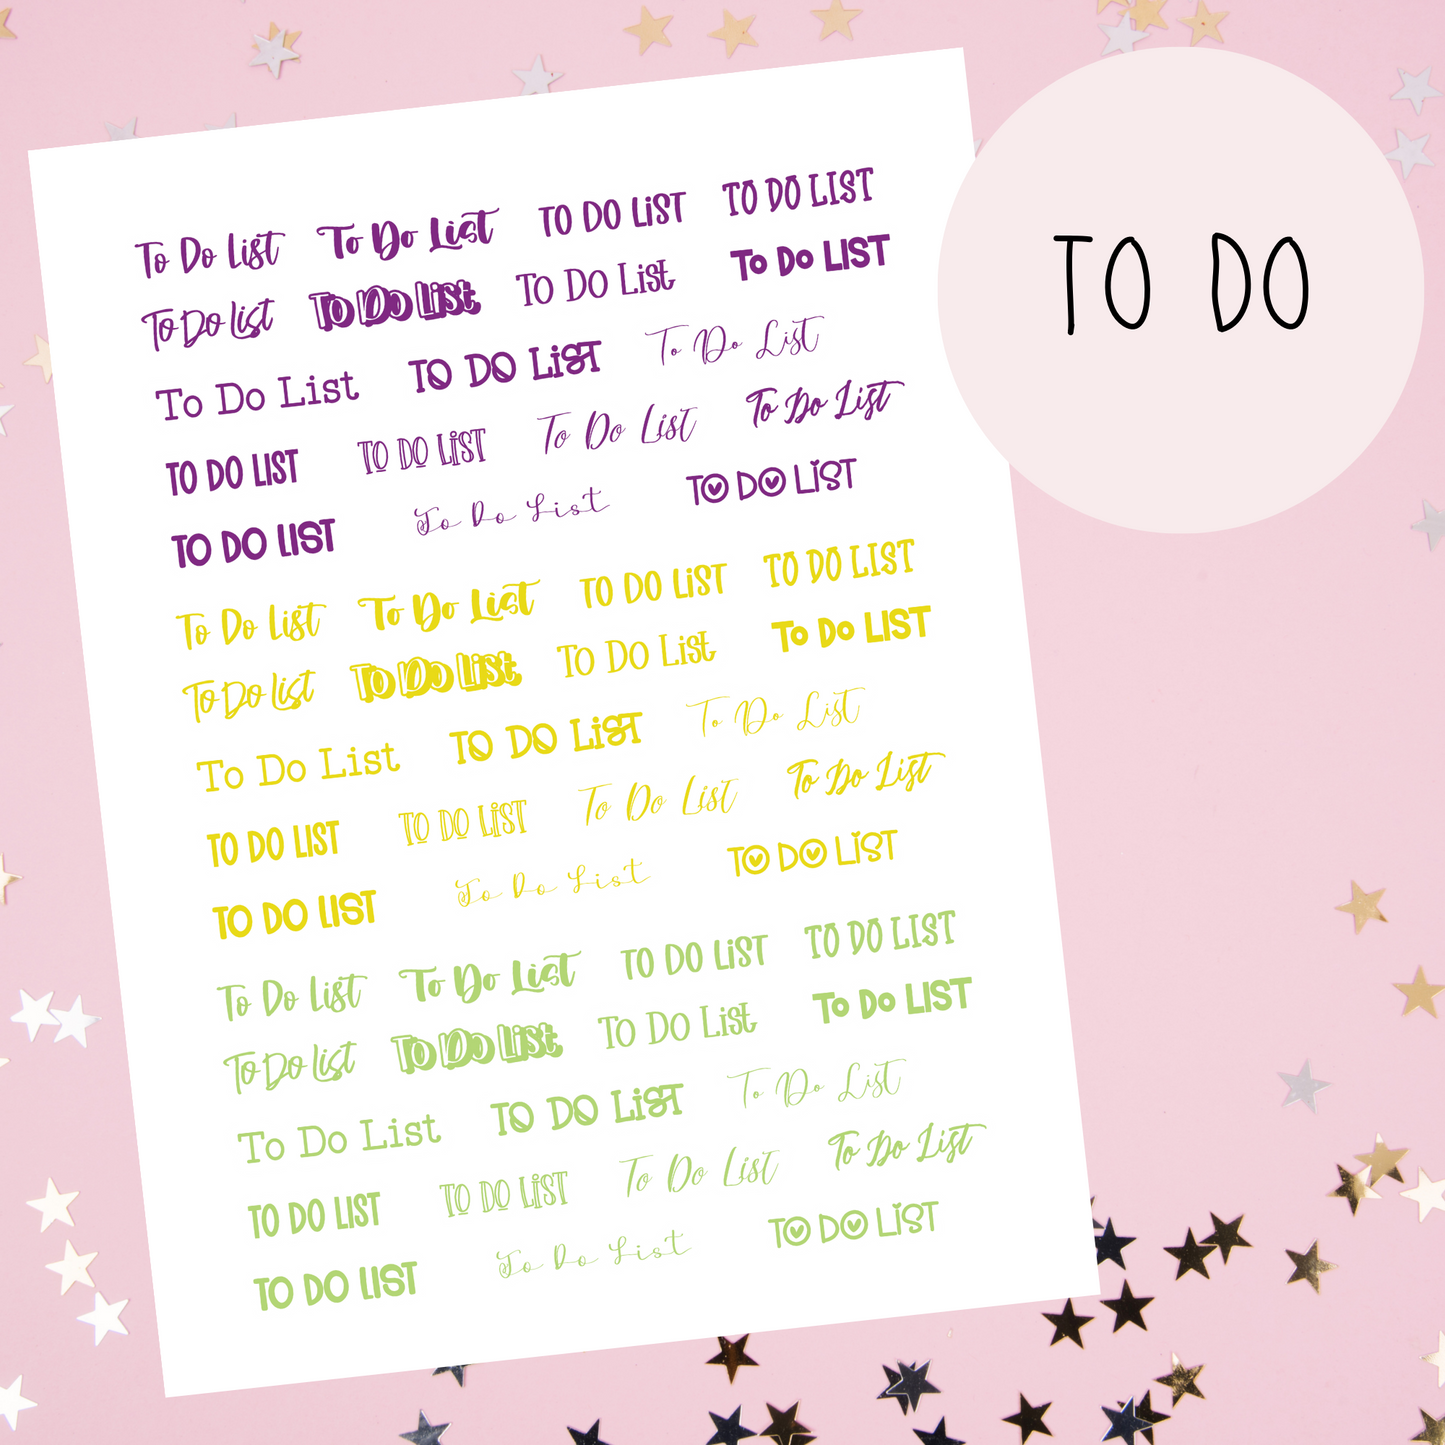 To Do List To Do List TO DO LiST TO DO LIST
To Do List To Do List To Do List To Do LIST
To Do List TO DO LiST To Do List
TO DO LIST TO DO LiST To Do List To Do List
TO DO LIST To Do List TO DO LiST
To Do List To Do List TO DO LiST TO DO LIST
To Do List To Do List To Do List To Do LIST
To Do List TO DO LiST To Do List
TO DO LIST TO DO LiST To Do List To Do List
TO DO LIST To Do List TO DO LiST
To Do List To Do List TO DO LiST TO DO LIST
To Do List To Do List To Do List To Do LIST
To Do List TO DO LiST To Do List
TO DO LIST TO DO LiST To Do List To Do List
TO DO LIST To Do List TO DO LiST
TO DO